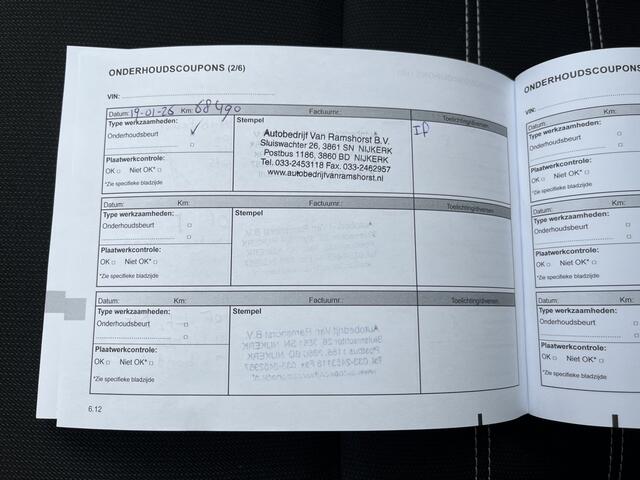 ONDERHOUDSCOUPONS (2/6)
VIN:
Datum: 19-01-26 Km: 68490 Factuurnr.: Toelichting/diversen
Type werkzaamheden: Stempel
Onderhoudsbeurt ✓
Autobedrijf Van Ramshorst B.V.
Sluiswachter 26, 3861 SN NIJKERK
Postbus 1186, 3860 BD NIJKERK
Tel. 033-2453118 Fax. 033-2462957
www.autobedrijfvanramshorst.nl
Plaatwerkcontrole:
OK □ Niet OK* □
*Zie specifieke bladzijde
Datum: Km: Factuurnr.: Toelichting/diversen
Type werkzaamheden: Stempel
Onderhoudsbeurt □
Plaatwerkcontrole:
OK □ Niet OK* □
*Zie specifieke bladzijde
Datum: Km: Factuurnr.: Toelichting/diversen
Type werkzaamheden: Stempel
Onderhoudsbeurt □
Plaatwerkcontrole:
OK □ Niet OK* □
*Zie specifieke bladzijde
6.12
ONDERHOUDSCOUPONS
VIN:
Datum:
Type werkzaamheden:
Onderhoudsbeurt
Plaatwerkcontrole:
OK □ Niet OK* □
*Zie specifieke bladzijde
Datum:
Type werkzaamheden:
Onderhoudsbeurt
Plaatwerkcontrole:
OK □ Niet OK* □
*Zie specifieke bladzijde
Datum:
Type werkzaamheden:
Onderhoudsbeurt
Plaatwerkcontrole:
OK □ Niet OK* □
*Zie specifieke bladzijde